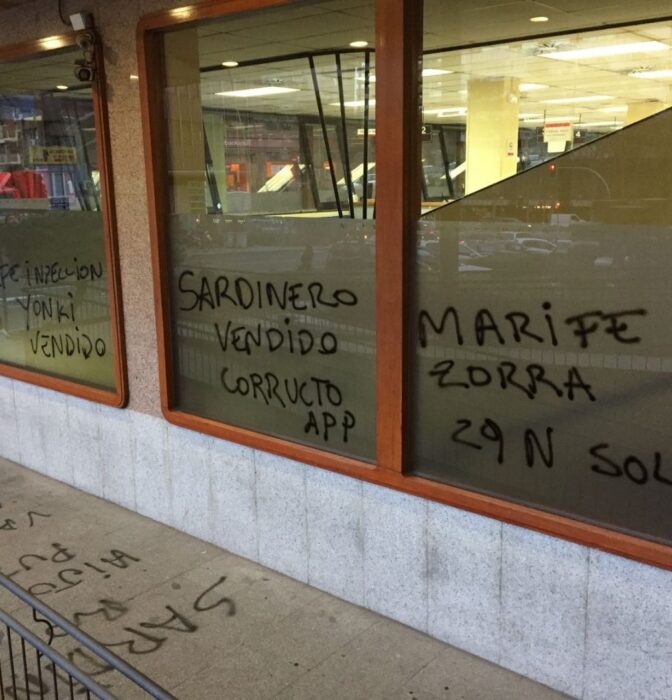 FE INPECCION
YONKI
VENDIDO
SARDINERO
VENDIDO
CORRUCTO
APP
MARIFE
ZORRA
29 N SOL
2
HIJO
PU
SARD